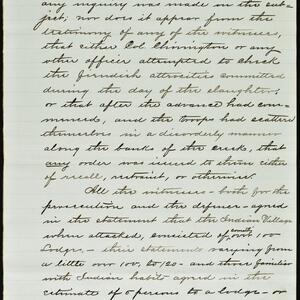 any inquiry was made in the sub-
ject, nor does it appear from the
testimony of any of the witnesses,
that either Col Chivington or any
other officer attempted to check
the fiendish atrocities committed
during the day of the slaughter;
or that after the advance had com-
menced, and the troops had scattered
themselves in a disorderly manner
along the banks of the creek, that
any order was issued to them either
of recall, restraint, or otherwise.
All the witnesses - both for the
prosecution and the defense agreed
in the statement that the Indian Village
when attacked, consisted of over 100
Lodges - their statements varying from
a little over 100, to 120 - and those familiar
with Indian habits agreed in the
estimate of 5 persons to a lodge - or